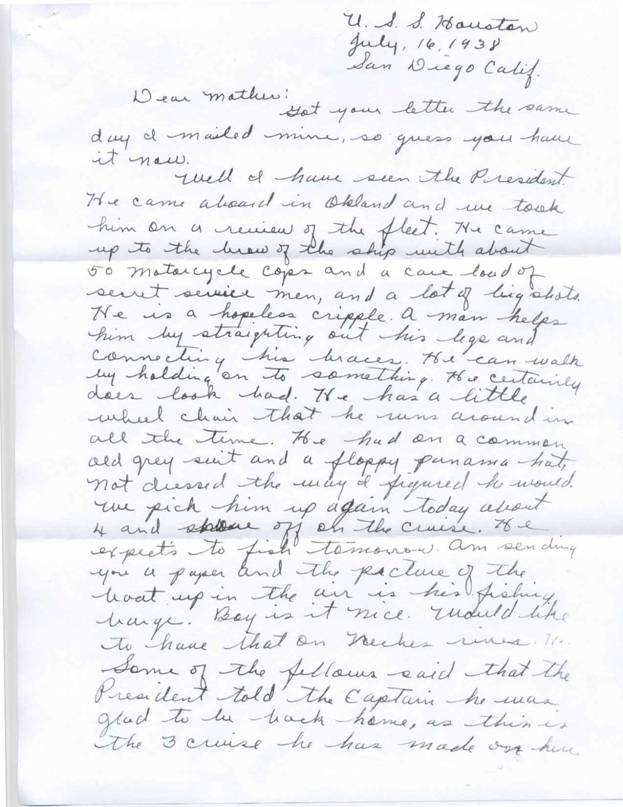 U. S. S. Houston
July, 16, 1938
San Diego Calif.
Dear Mother:
Got your letter the same
day I mailed mine, so guess you have
it now.
Well I have seen the President.
He came aboard in Okland and we took
him on a review of the fleet. He came
up to the brow of the ship with about
50 motorcycle cops and a care load of
secret service men, and a lot of big shots.
He is a hopeless cripple. A man helps
him by straighting out his legs and
connecting his braces. He can walk
by holding on to something. He certainly
does look bad. He has a little
wheel chair that he runs around in
all the time. He had on a common
old grey suit and a floppy panama hat,
Not dressed the way I figured he would.
We pick him up again today about
4 and shove off on the cruise. He
expects to fish tomorrow. Am sending
you a paper and the picture of the
boat up in the air is his fishing
barge. Boy is it nice. Would like
to have that on Neches river.
Some of the fellows said that the
President told the Captain he was
glad to be back home, as this is
the 3 cruise he has made on here